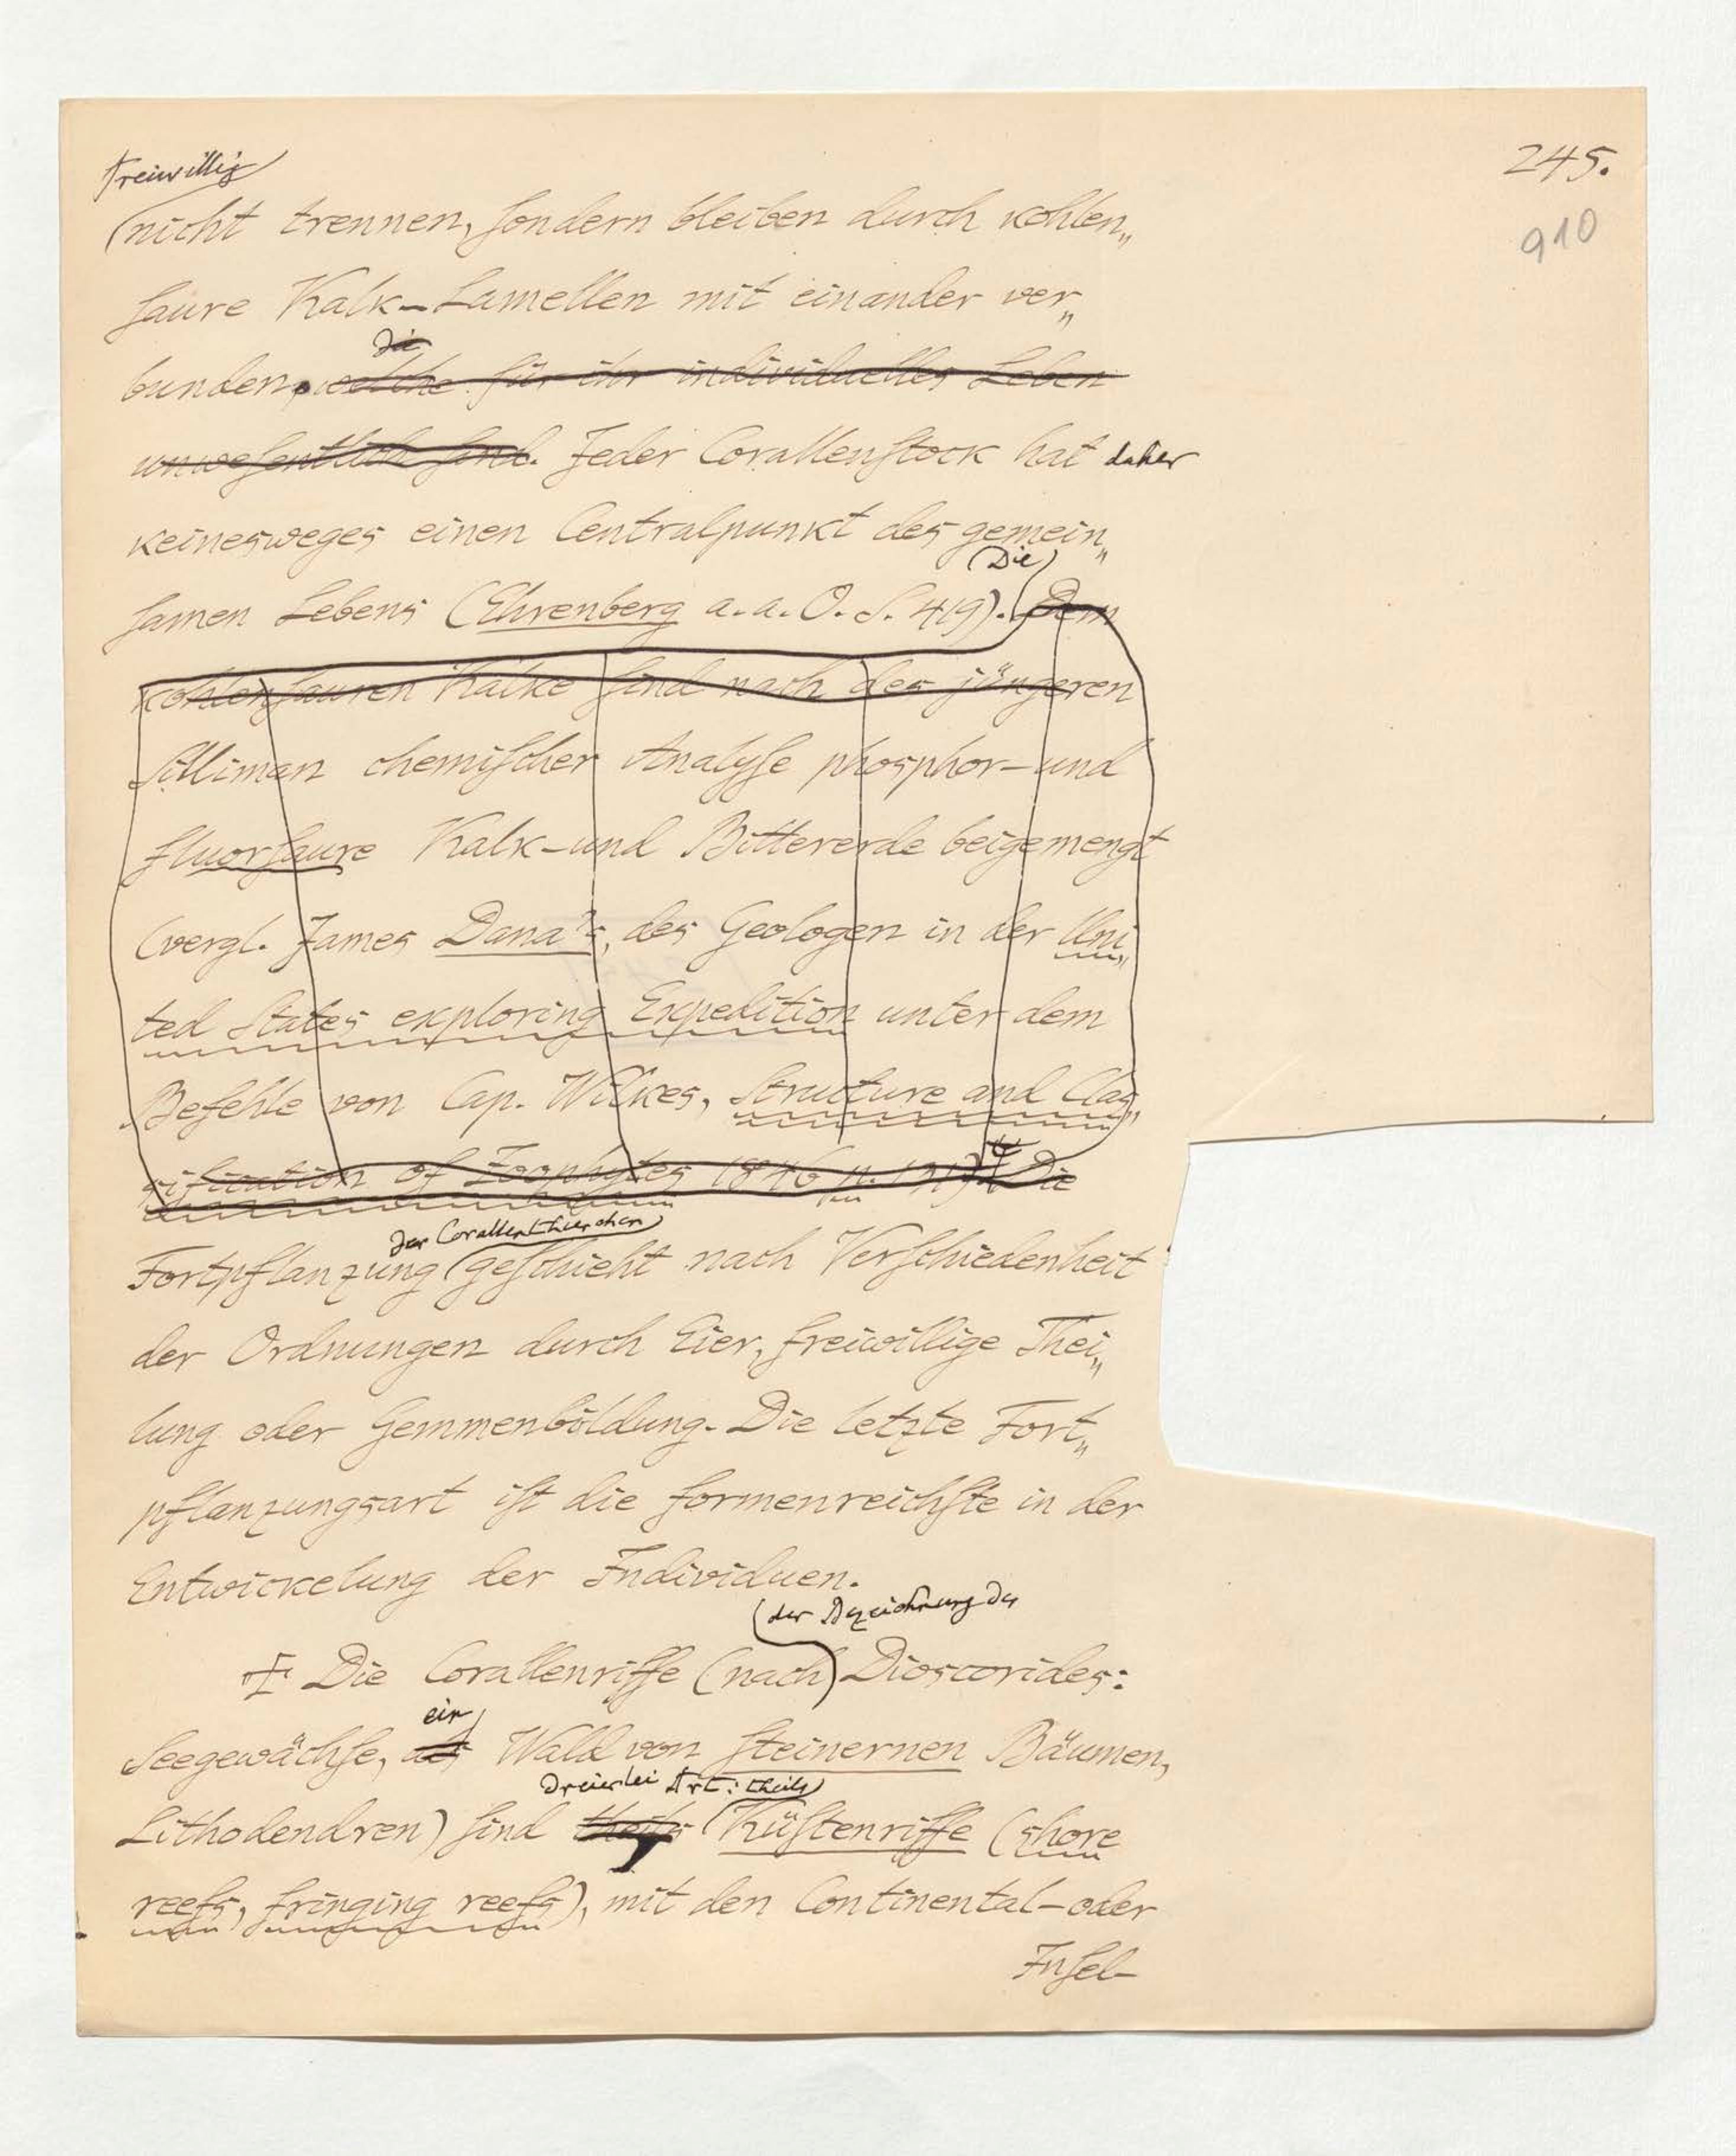 245.
910
freiwillig
nicht trennen, sondern bleiben durch kohlen„
saure Kalk-Lamellen mit einander ver„
die
bunden, welche für ihr individuelles Leben
unwesentlich sind. Jeder Corallenstock hat daher
keinesweges einen Centralpunkt des gemein„
Die
samen Lebens (Ehrenberg a. a. O. S. 419). Dem
kohlensauren Kalke sind nach des jüngeren
Silliman chemischer Analyse phosphor- und
fluorsaure Kalk- und Bittererde beigemengt
(vergl. James Dana's, des Geologen in der Uni„
ted States exploring Expedition unter dem
Befehle von Cap. Wilkes, Structure and Clas„
sification of Zoophytes 1846 p. Die
der Corallenthierchen
Fortpflanzung geschieht nach Verschiedenheit
der Ordnungen durch Eier, freiwillige Thei„
lung oder Gemmenbildung. Die letzte Fort„
pflanzungsart ist die formenreichste in der
Entwickelung der Individuen.
der Bezeichnung des
Die Corallenriffe (nach Dioscorides:
ein
Seegewächse, als Wald von steinernen Bäumen,
dreierlei Art: theils
Lithodendren) sind theils Küstenriffe (shore
reefs, fringing reefs), mit den Continental- oder
Insel-